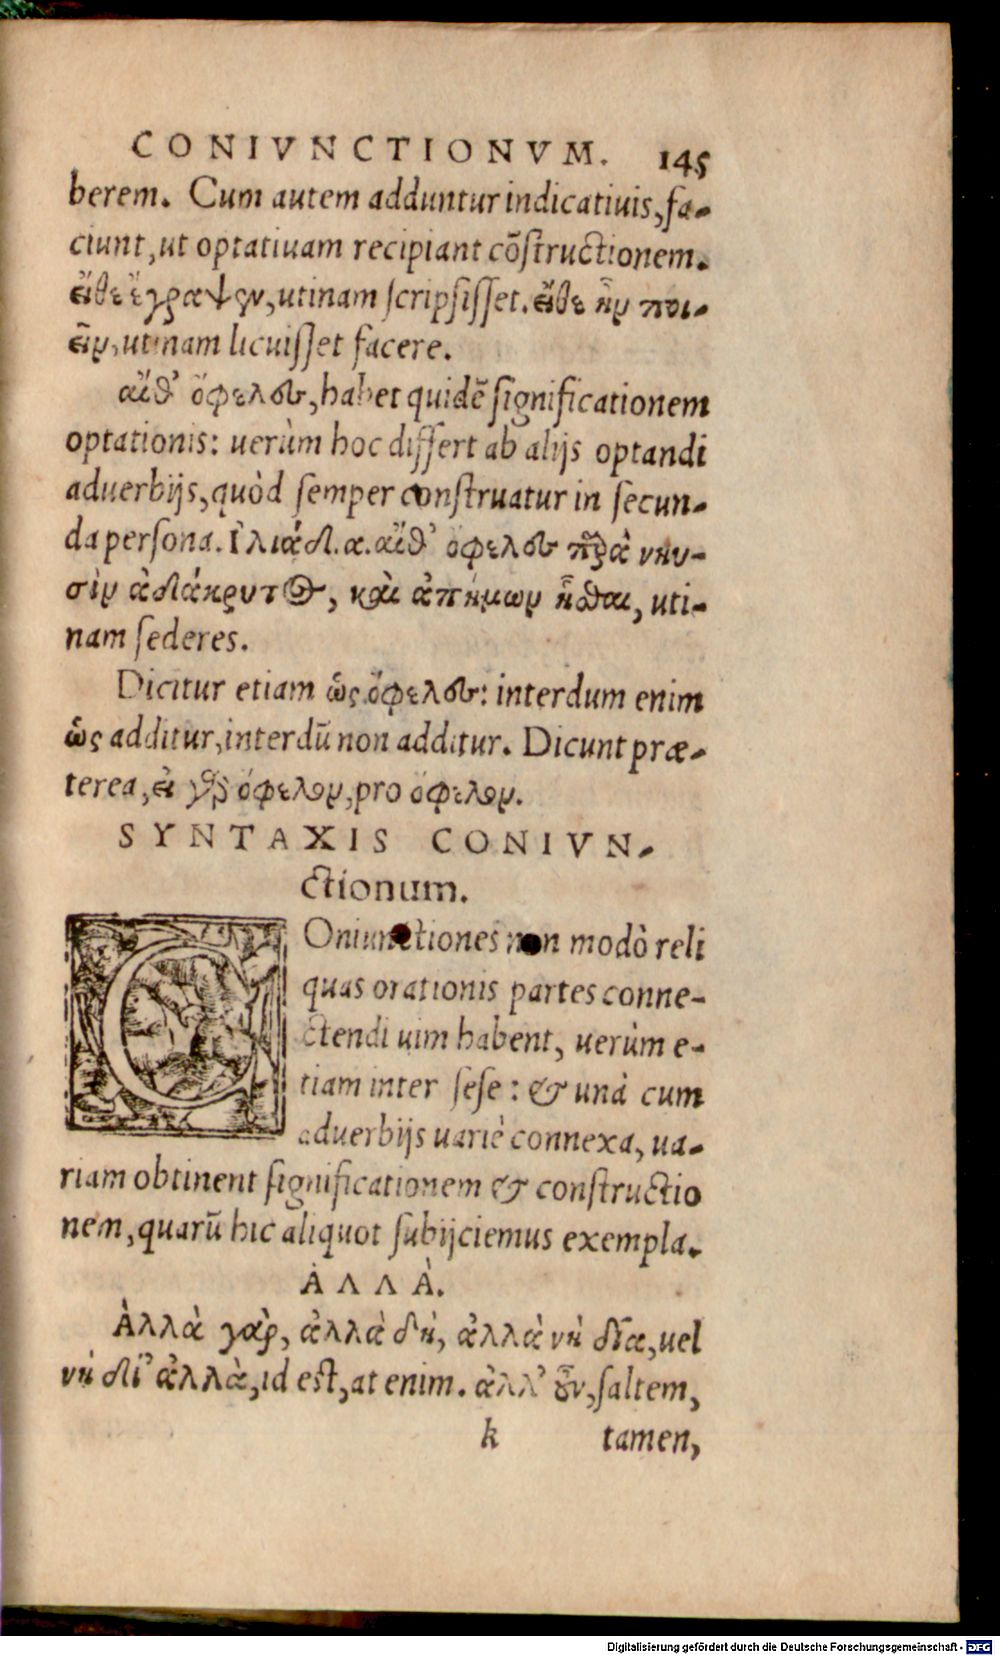 CONIVNCTIONVM. 145
berem. Cum autem adduntur indicatiuis, fa-
ciunt, ut optatiuam recipiant cõstructionem.
εἴθε ἔγραψεν, utinam scripsisset. εἴθε ἦν ποι-
εῖν, utinam licuisset facere.
αἴθ' ὄφελου, habet quidẽ significationem
optationis: uerùm hoc differt ab alijs optandi
aduerbijs, quòd semper construatur in secun-
da persona. Ἰλιάδ. α. αἴθ' ὄφελου παρὰ νηυ-
σὶν ἀδάκρυτος, καὶ ἀπήμων ἧσθαι, uti-
nam sederes.
Dicitur etiam ὡς ὄφελου: interdum enim
ὡς additur, interdũ non additur. Dicunt præ-
terea, εἰ γὰρ ὄφελον, pro ὄφελον.
SYNTAXIS CONIVN-
ctionum.
COniunctiones non modò reli
quas orationis partes conne-
ctendi uim habent, uerùm e-
tiam inter sese: & unà cum
aduerbijs uariè connexa, ua-
riam obtinent significationem & constructio
nem, quarũ hic aliquot subijciemus exempla.
ἈΛΛᾺ.
Ἀλλὰ γὰρ, ἀλλὰ δή, ἀλλὰ νὴ δία, uel
νὴ δί' ἀλλὰ, id est, at enim. ἀλλ' οὖν, saltem,
k tamen,
Digitalisierung gefördert durch die Deutsche Forschungsgemeinschaft - DFG